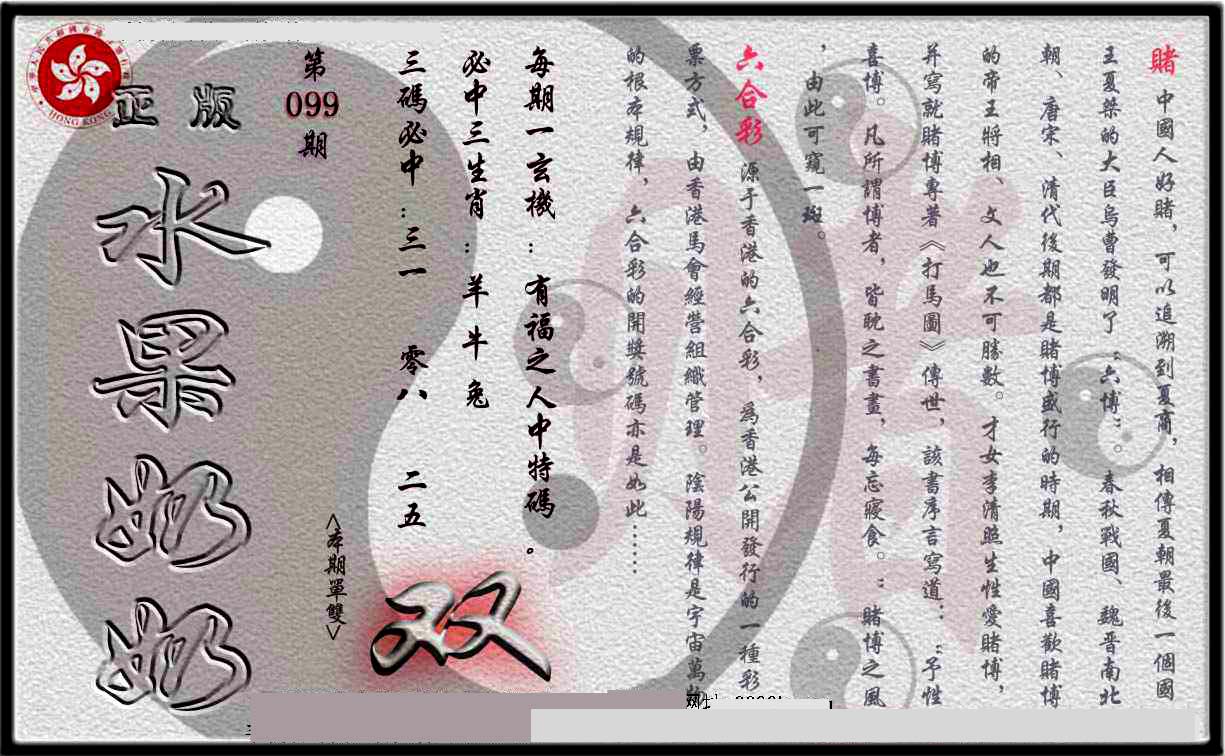 賭 中國人好賭，可以追溯到夏商，相傳夏朝最後一個國
王夏桀的大臣烏曹發明了“六博”。春秋戰國、魏晋南北
朝、唐宋、清代後期都是賭博盛行的時期，中國喜歡賭博
的帝王將相、文人也不可勝數。才女李清照生性愛賭博，
并寫就賭博專著《打馬圖》傳世，該書序言寫道：“予性
喜博。凡所謂博者，皆耽之書畫，每忘寢食。”賭博之風
，由此可窺一斑。
六合彩 源于香港的六合彩，為香港公開發行的一種彩
票方式，由香港馬會經營組織管理。陰陽規律是宇宙萬物
的根本規律，六合彩的開獎號碼亦是如此……
每期一玄機：有福之人中特碼。
必中三生肖：羊牛兔
三碼必中：三一 零八 二五
<本期單雙>
双
第
099
期
正版
水果奶奶
HONG KONG